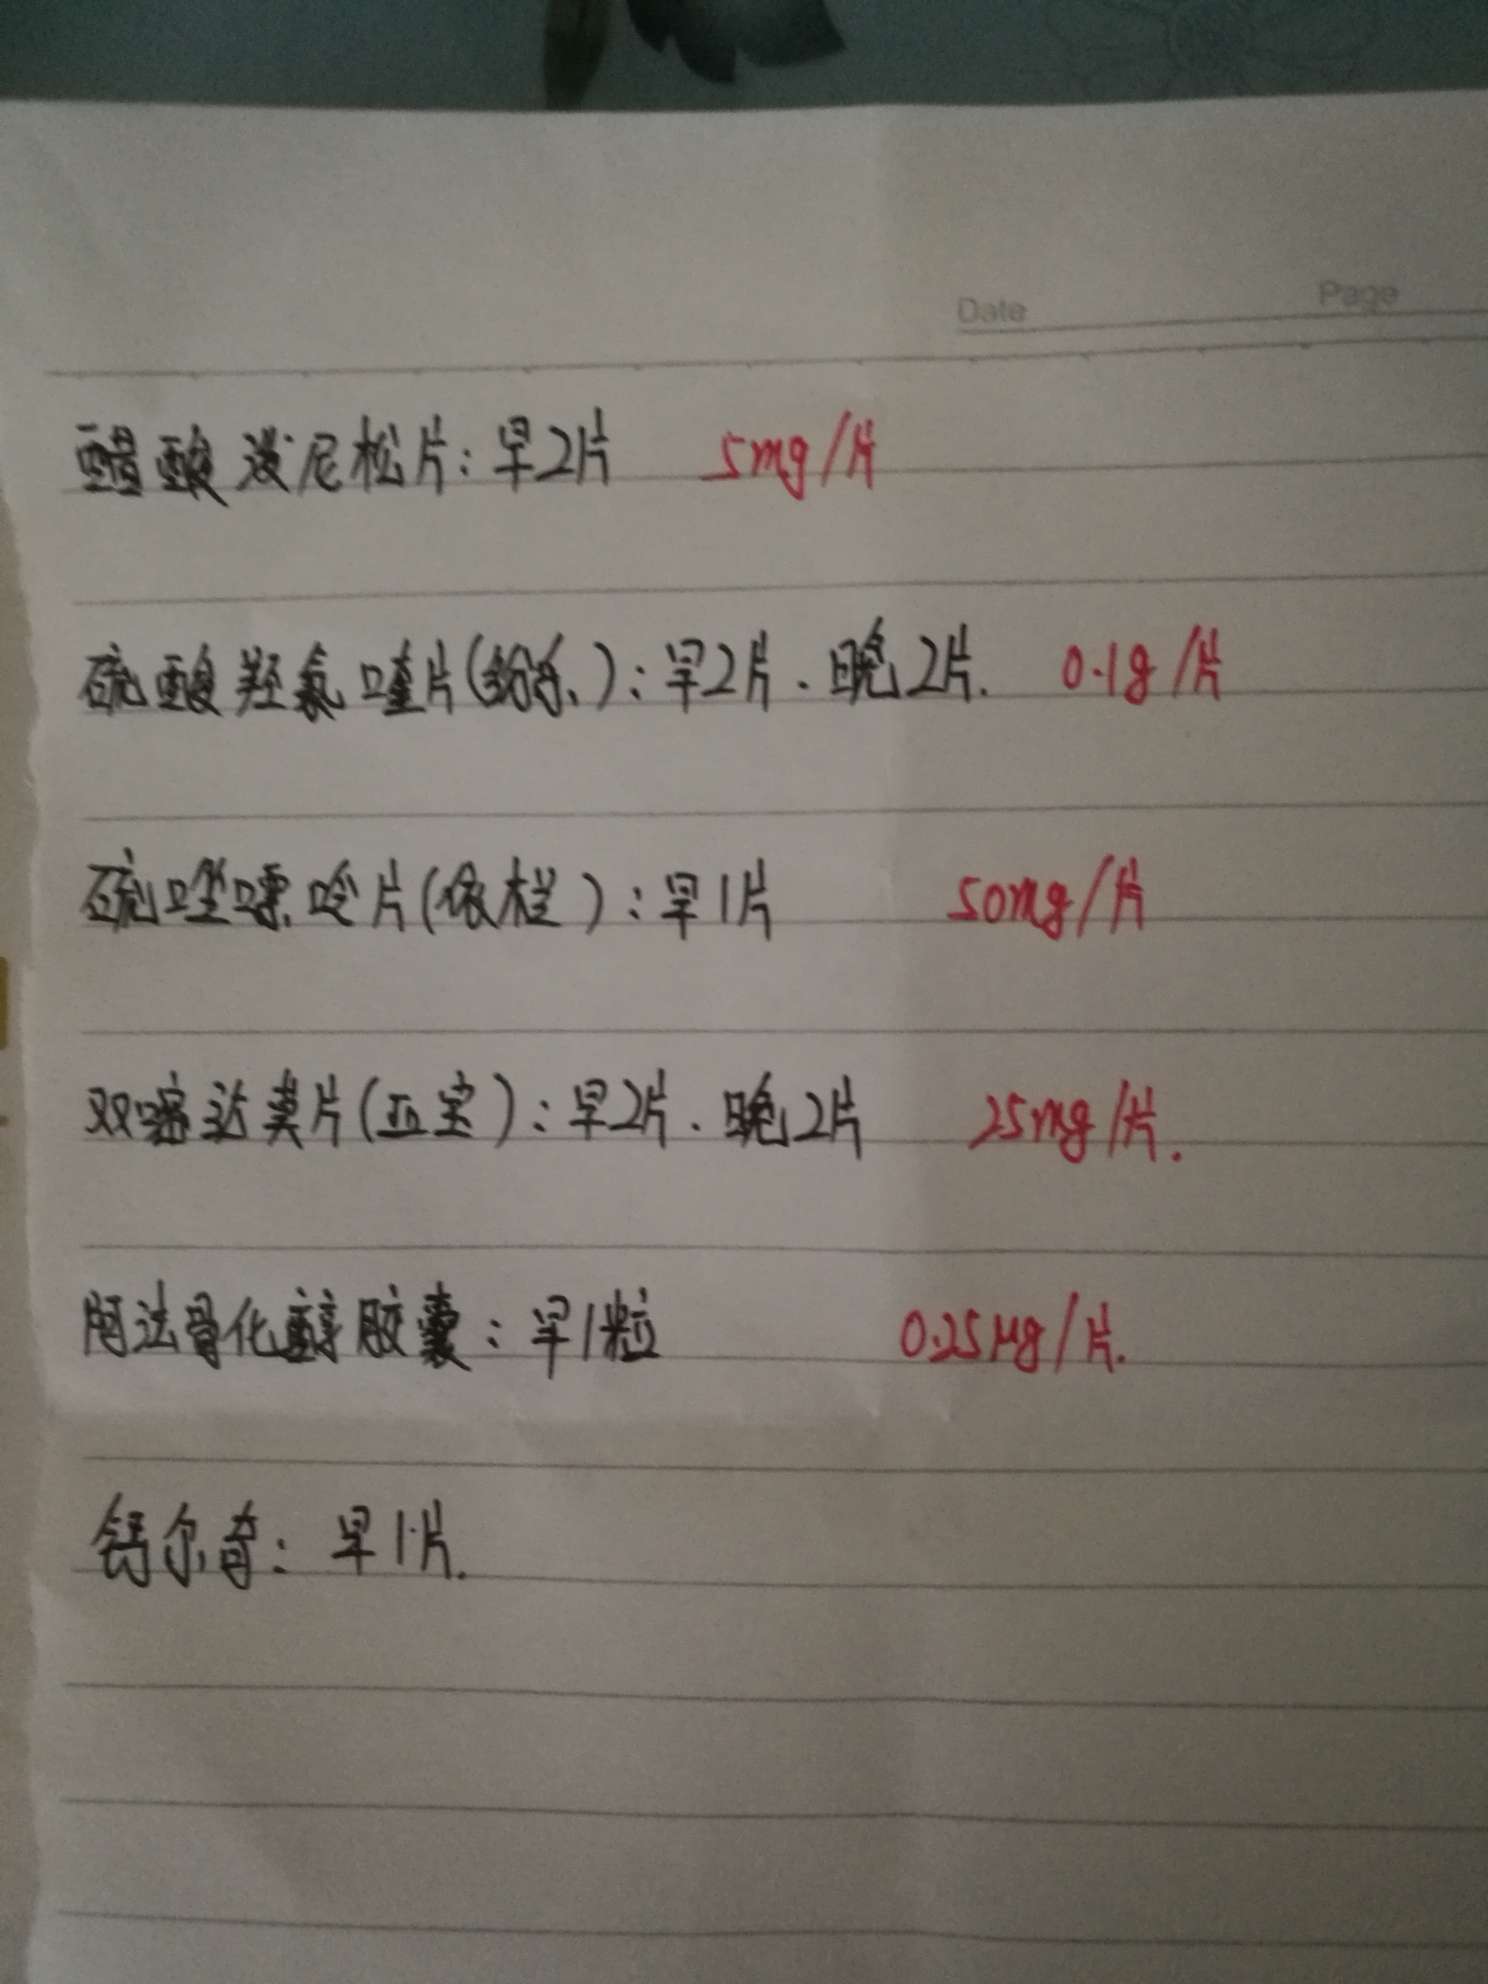 Date Page
醋酸泼尼松片：早2片 5mg/片
硫酸羟氯喹片(纷乐)：早2片．晚2片. 0.1g/片
硫唑嘌呤片(依木兰)：早1片 50mg/片
双嘧达莫片(亚宝)：早2片．晚2片 25mg/片.
阿法骨化醇胶囊：早1粒 0.25μg/片.
钙尔奇：早1片.